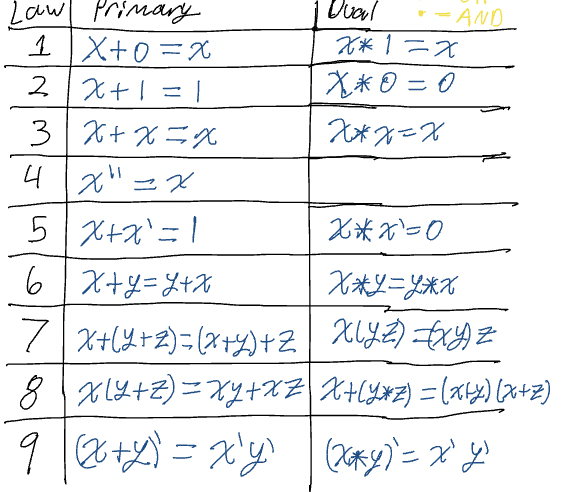 Law Primary Dual • = AND
1 x+0=x x*1=x
2 x+1=1 x*0=0
3 x+x=x x*x=x
4 x''=x
5 x+x'=1 x*x'=0
6 x+y=y+x x*y=y*x
7 x+(y+z)=(x+y)+z x(yz)=(xy)z
8 x(y+z)=xy+xz x+(y*z)=(x+y)(x+z)
9 (x+y)'=x'y' (x*y)'=x' y'